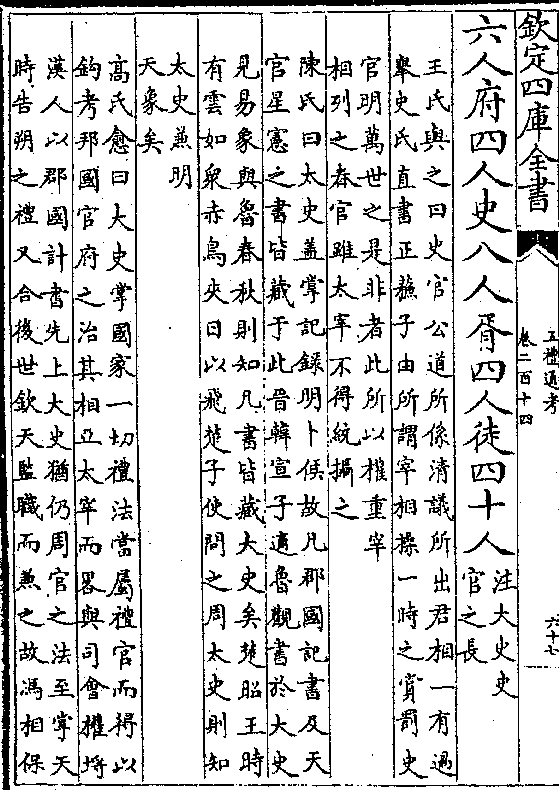 欽定四庫全書
五禮通考
卷二百十四
六十七
六人府四人史八人胥四人徒四十人
注大史史
官之長
王氏與之曰史官公道所係清議所出君相一有過
舉史氏直書正蘇子由所謂宰相操一時之賞罰史
官明萬世之是非者此所以權重宰
相列之春官雖太宰不得統攝之
陳氏曰太史蓋掌記録明卜候故凡郡國記書及天
官星憲之書皆藏于此晉韓宣子適魯觀書於大史
見易象與魯春秋則知凡書皆藏大史矣楚昭王時
有雲如衆赤鳥夾日以飛楚子使問之周太史則知
太史兼明
天象矣
高氏愈曰大史掌國家一切禮法當屬禮官而得以
鈎考邦國官府之治其相亞太宰而畧與司會權埒
漢人以郡國計書先上大史猶仍周官之法至掌天
時告朔之禮又合後世欽天監職而兼之故馮相保